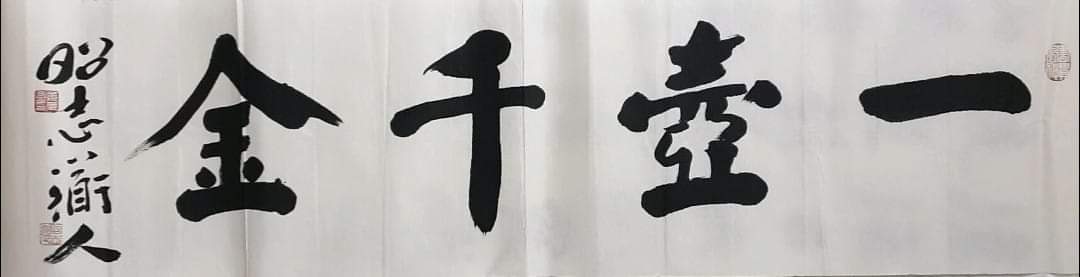 一壺千金
昭志衜人